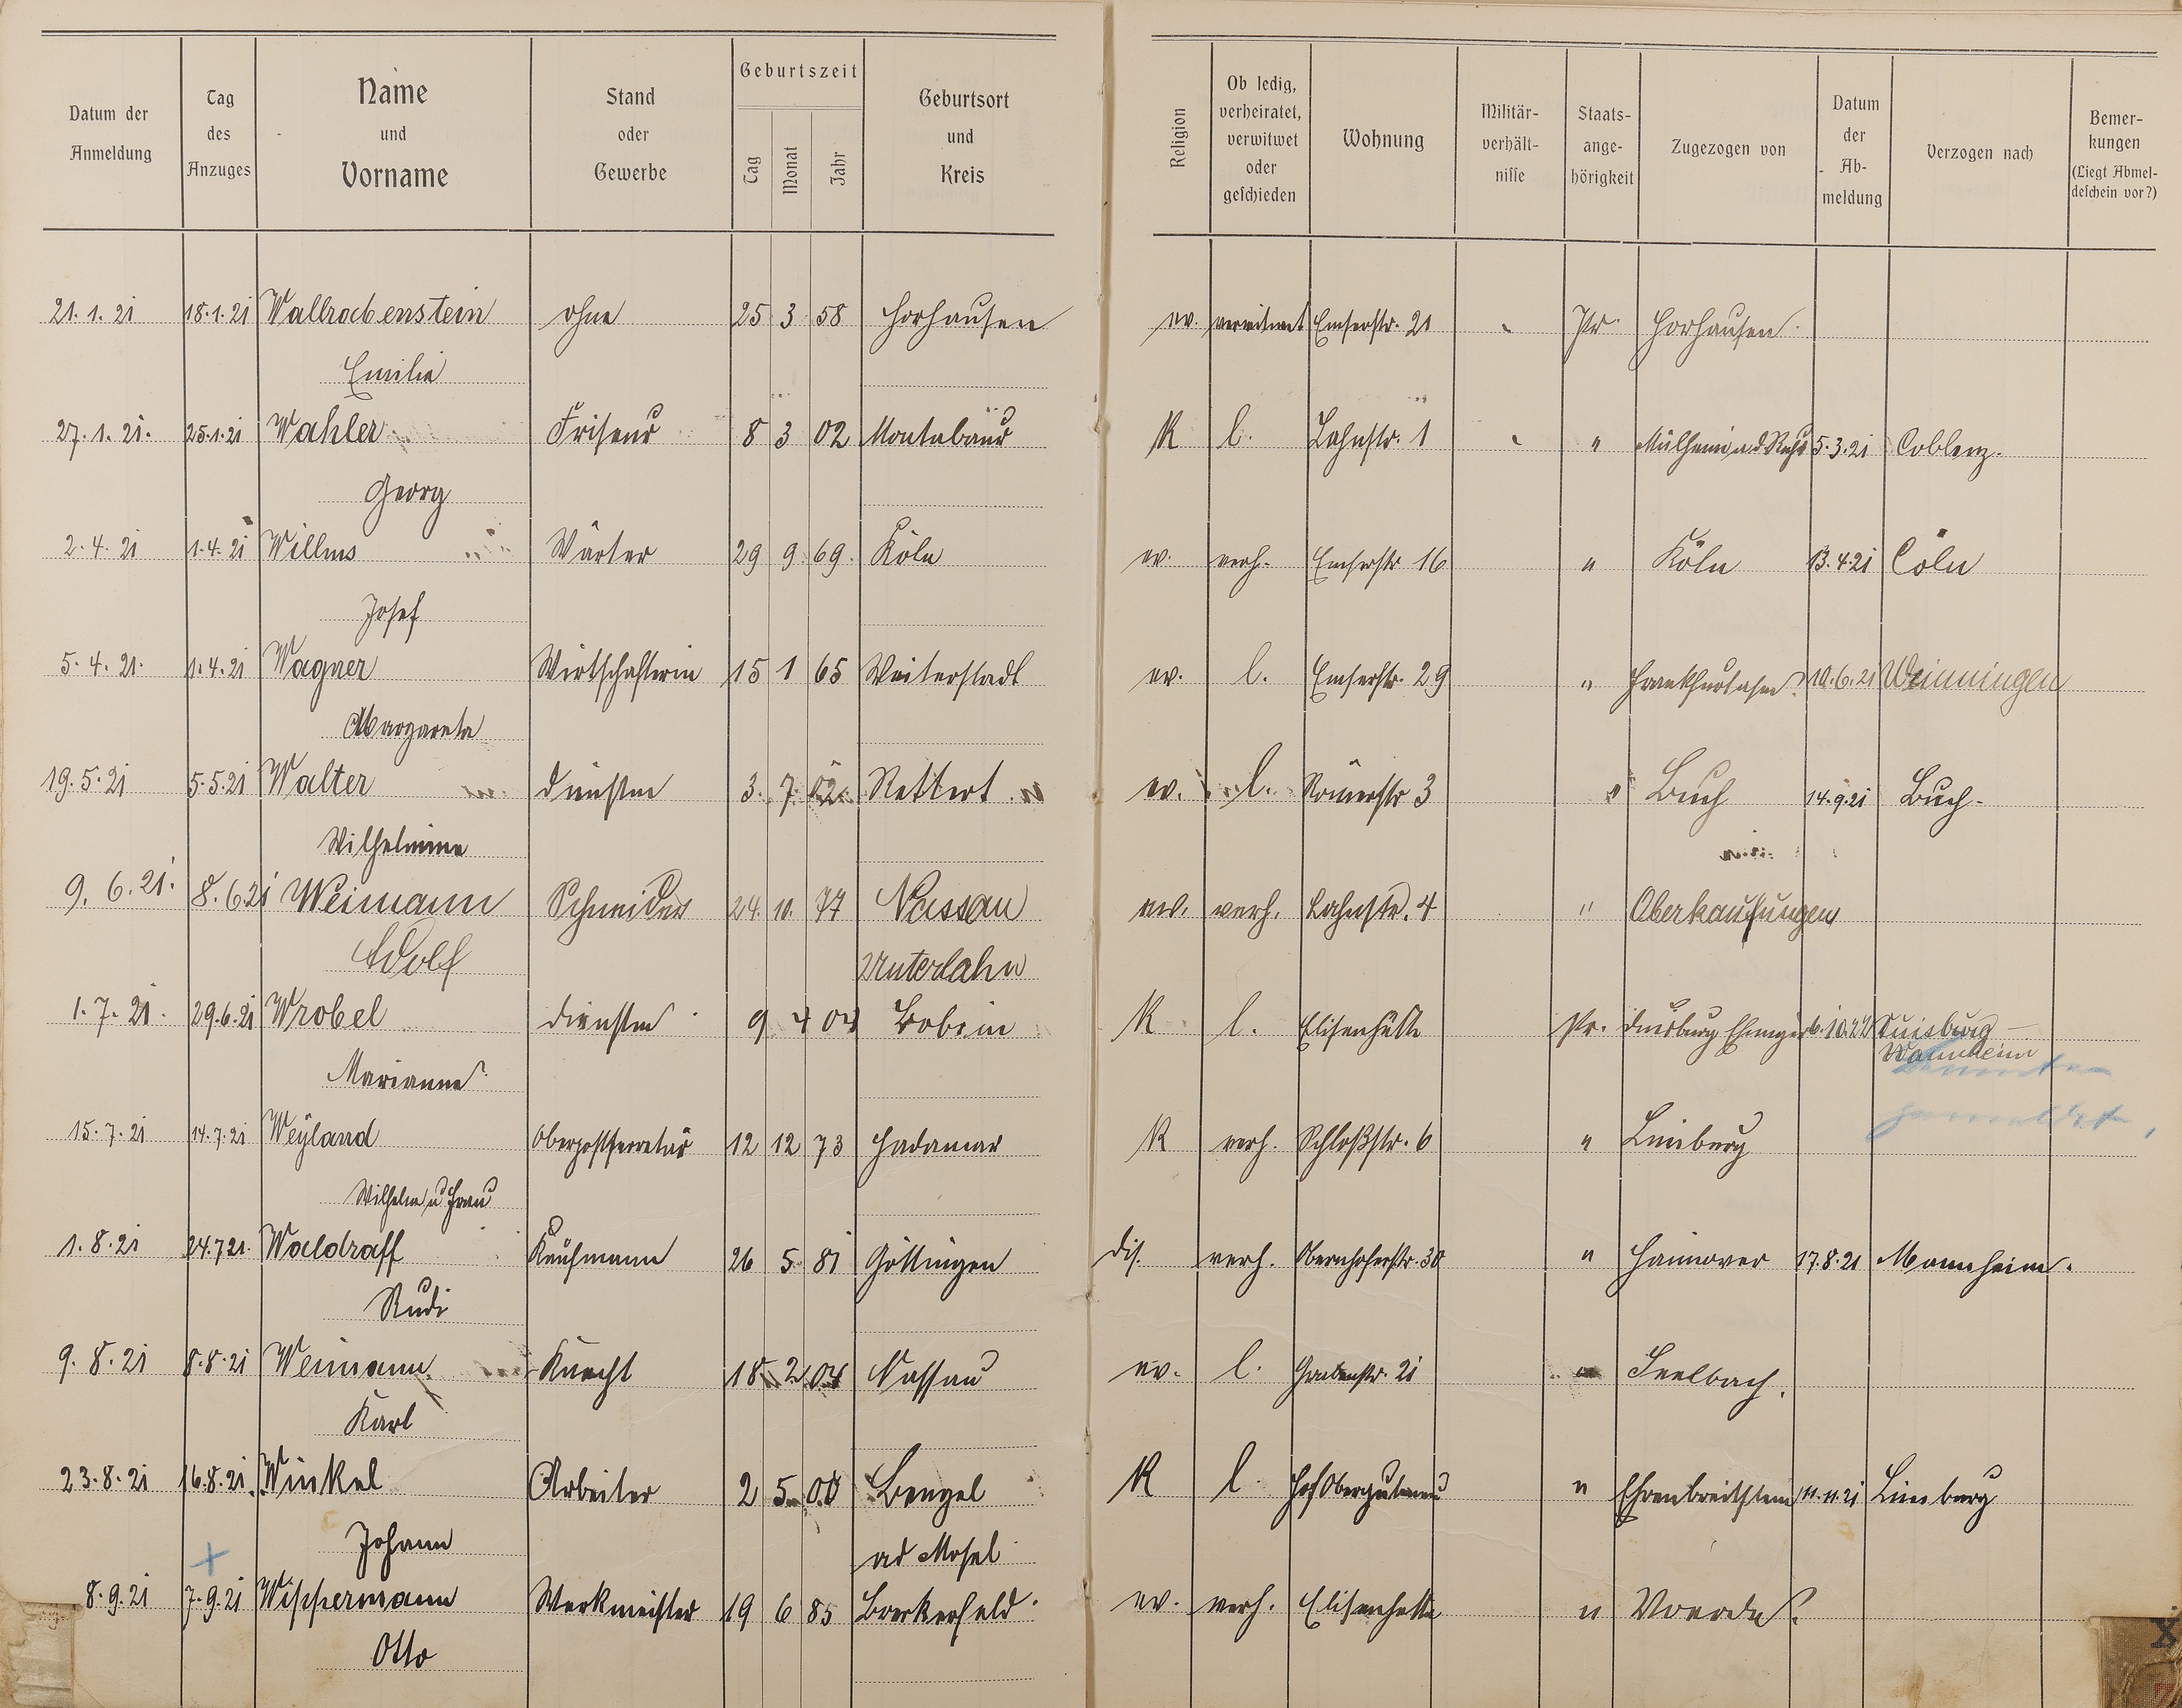 Datum der Anmeldung | Tag des Anzuges | Name und Vorname | Stand oder Gewerbe | Geburtszeit Tag Monat Jahr | Geburtsort und Kreis | Religion | Ob ledig, verheiratet, verwitwet oder geschieden | Wohnung | Militär-verhält-nisse | Staats-ange-hörigkeit | Zugezogen von | Datum der Ab-meldung | Verzogen nach | Bemer-kungen (Liegt Abmel-deschein vor?)
21.1.21 18.1.21 Wallrabenstein ohne 25 3 58 Horhausen ev. verwitwet Emserstr. 21 Pr. Horhausen.
Emilie
27.1.21. 25.1.21 Wahler Friseur 8 3 02 Montabaur K l. Lahnstr. 1 " Mülheim a.d. Ruhr 5.3.21 Coblenz.
Georg
2.4.21 1.4.21 Willms Wärter 29 9 69. Köln ev. verh. Emserstr 16 " Köln 13.4.21 Cöln
Josef
5.4.21. 1.4.21 Wagner Wirtschafterin 15 1 65 Weiterstadt ev. l. Emserstr. 29 " 10.6.21
Margareta
19.5.21 5.5.21 Walter Dienstm 3. 7. 02. Rettert ev. l. Römerstr 3 " Buch 14.9.21 Buch.
Wilhelmine
9.6.21. 8.6.21 Weimann Schneider 24. 10. 77 Nassau ev. verh. Lahnstr. 4 " Oberkaufungen
Adolf Unterlahn
1.7.21. 29.6.21 Wrobel Dienstm 9 4 04 K l. Elisenhütte Pr. Duisburg Duisburg-
Wanheim
Marianne
15.7.21 14.7.21 Weyland Oberpostsekretär 12 12 73 Hadamar K verh. Schloßstr. 6 " Limburg gemeldet
Wilhelm u Frau
1.8.21 24.7.21. Waldraff Kaufmann 26 5 81 Göttingen dis. verh. Obernhoferstr. 30 " Hannover 17.8.21 Mannheim.
Rudi
9.8.21 8.8.21 Weimann Knecht 18 2 04 Nassau ev. l. Grabenstr. 21 " Seelbach.
Karl
23.8.21 16.8.21. Winkel Arbeiter 2 5 00 Bengel K l. Hof " Ehrenbreitstein 11.11.21 Limburg
Johann ad Mosel
8.9.21 7.9.21 Wippermann Werkmeister 19 6 85 ev. verh. Elisenhütte " Voerde
Otto